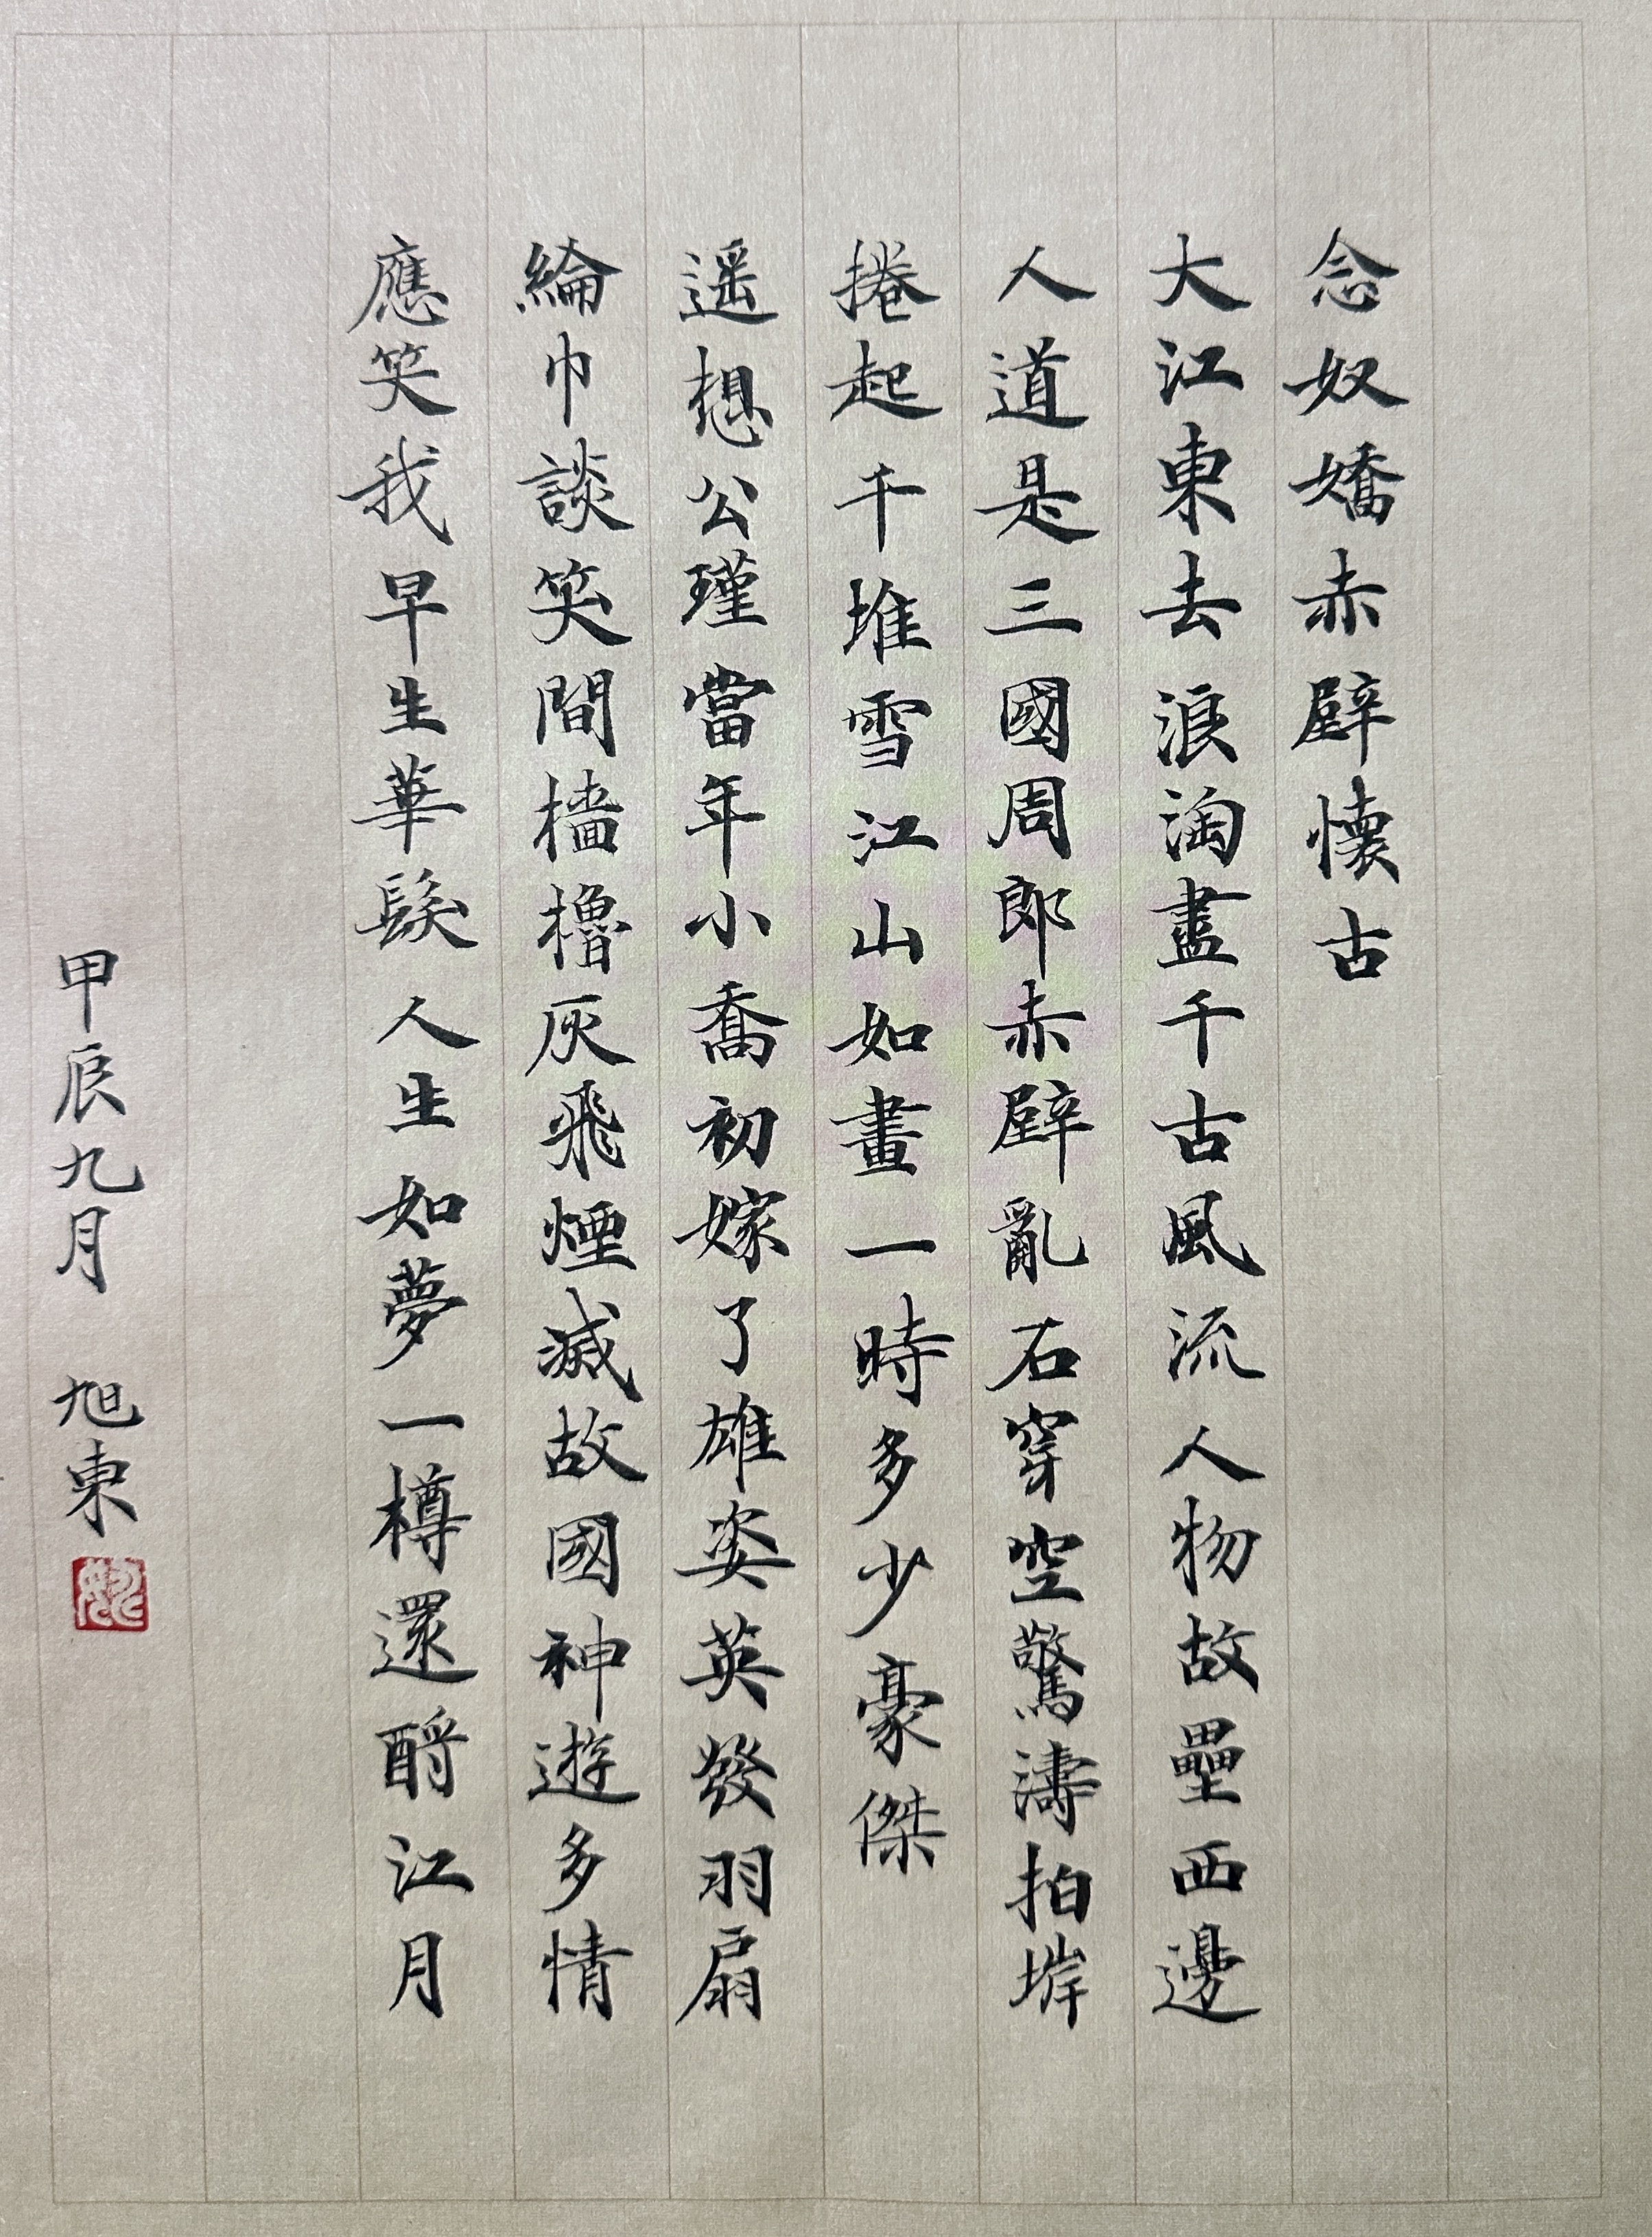 念奴嬌赤壁懷古
大江東去浪淘盡千古風流人物故壘西邊
人道是三國周郎赤壁亂石穿空驚濤拍岸
捲起千堆雪江山如畫一時多少豪傑
遥想公瑾當年小喬初嫁了雄姿英發羽扇
綸巾談笑間檣櫓灰飛煙滅故國神遊多情
應笑我早生華髮人生如夢一樽還酹江月
甲辰九月 旭東